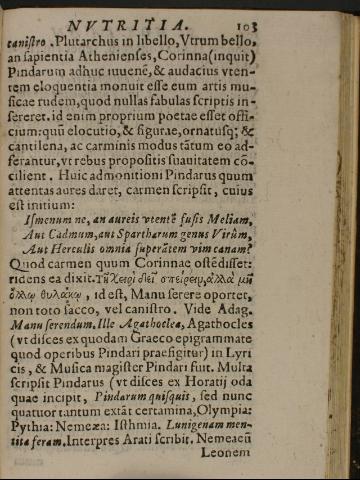 NVTRITIA. 103
canistro. Plutarchus in libello, Vtrum bello,
an sapientia Athenienses, Corinna (inquit)
Pindarum adhuc iuuenē, & audacius vten-
tem eloquentia monuit esse eum artis mu-
sicae rudem, quod nullas fabulas scriptis in-
sereret. id enim proprium poetae esset offi-
cium: quū elocutio, & figurae, ornatusq; &
cantilena, ac carminis modus tātum eo ad-
ferantur, vt rebus propositis suauitatem cō-
cilient. Huic admonitioni Pindarus quum
attentas aures daret, carmen scripsit, cuius
est initium:
Ismenum ne, an aureis vtentē fusis Meliam,
Aut Cadmum, aut Spartharum genus Virûm,
Aut Herculis omnia superātem vim canam?
Quod carmen quum Corinnae ostēdisset:
ridens ea dixit. Τῆ χειρὶ δεῖ σπείρειν, ἀλλὰ μὴ
ὅλλῳ θυλάκῳ, id est, Manu serere oportet,
non toto sacco, vel canistro. Vide Adag.
Manu serendum. Ille Agathoclea, Agathocles
(vt disces ex quodam Graeco epigrammate
quod operibus Pindari praefigitur) in Lyri
cis, & Musica magister Pindari fuit. Multa
scripsit Pindarus (vt disces ex Horatij oda
quae incipit, Pindarum quisquis, sed nunc
quatuor tantum extāt certamina, Olympia:
Pythia: Nemexa: Isthmia. Lunigenam men-
tita feram. Interpres Arati scribit. Nemeaeū
Leonem